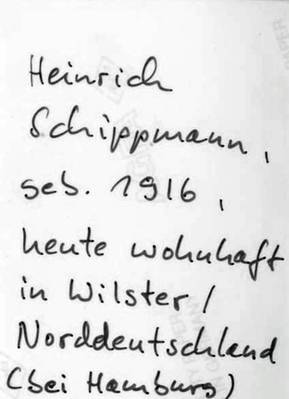 Heinrich
Schippmann,
geb. 1916,
heute wohnhaft
in Wilster /
Norddeutschland
(bei Hamburg)